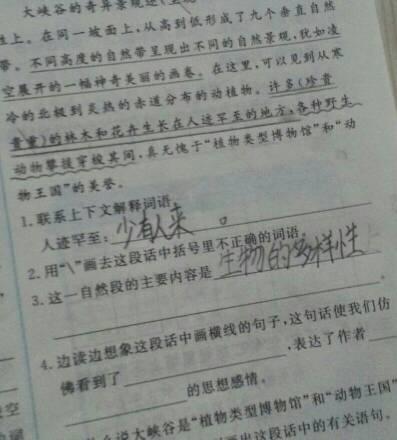 大峡谷的奇异景观还(
性上。在同一坡面上,从高到低形成了九个垂直自然
带。不同高度的自然带呈现出不同的自然景观,犹如凌
空展开的一幅神奇美丽的画卷。在这里,可以见到从寒
冷的北极到炎热的赤道分布的动植物。许多(珍贵
贵重)的林木和花卉生长在人迹罕至的地方,各种野生
动物攀援穿梭其间,真无愧于“植物类型博物馆”和“动
物王国”的美誉。
1.联系上下文解释词语。
人迹罕至:少有人来。
2.用“\”画去这段话中括号里不正确的词语。
3.这一自然段的主要内容是生物的多样性
4.边读边想象这段话中画横线的句子,这句话使我们仿
佛看到了,表达了作者
的思想感情。
么说大峡谷是“植物类型博物馆”和“动物王国”
出这段话中的有关语句。
空